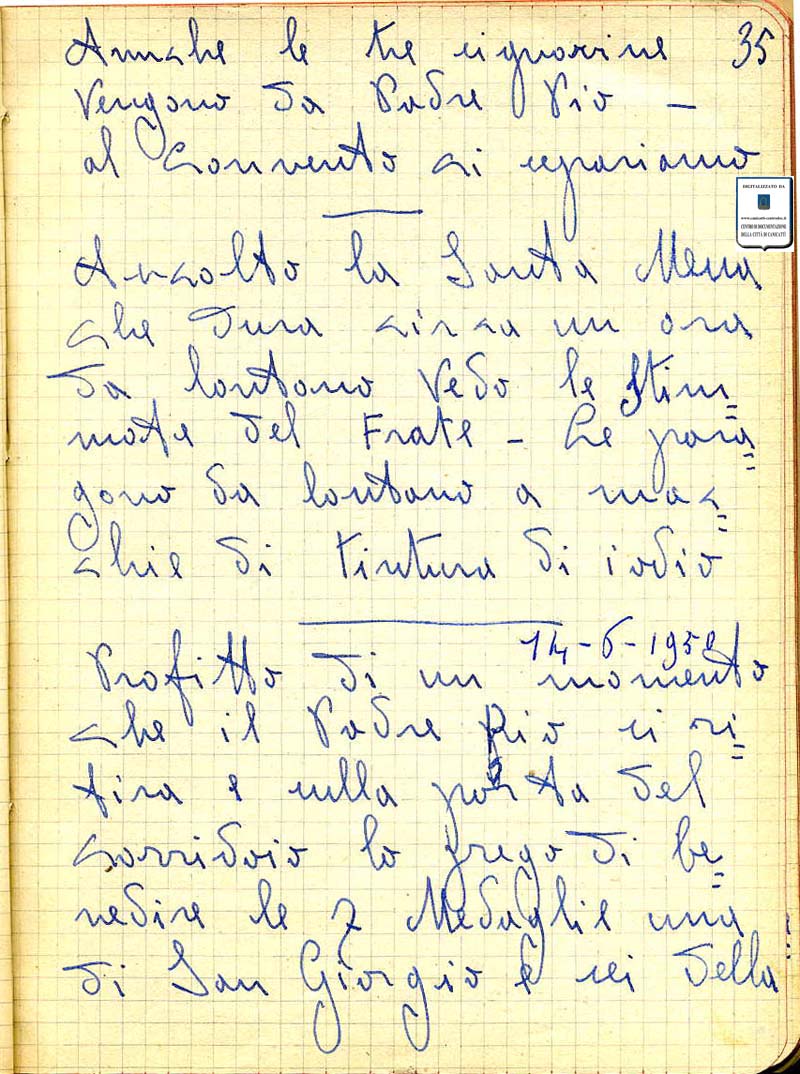 35
Anche le tre signorine
vengono da Padre Pio –
al convento ci separiamo
Ascolto la Santa Messa
che dura circa un ora
da lontano vedo le stim=
mate del Frate – Le para=
gono da lontano a mac=
chie di tintura di iodio
14-6-1952
Profitto di un momento
che il Padre Pio si ri=
tira e sulla porta del
corridoio lo prego di be=
nedire le 7 Medaglie una
di San Giorgio e sei della
DIGITALIZZATO DA
www.canicatti-centrodoc.it
CENTRO DI DOCUMENTAZIONE
DELLA CITTÀ DI CANICATTÌ